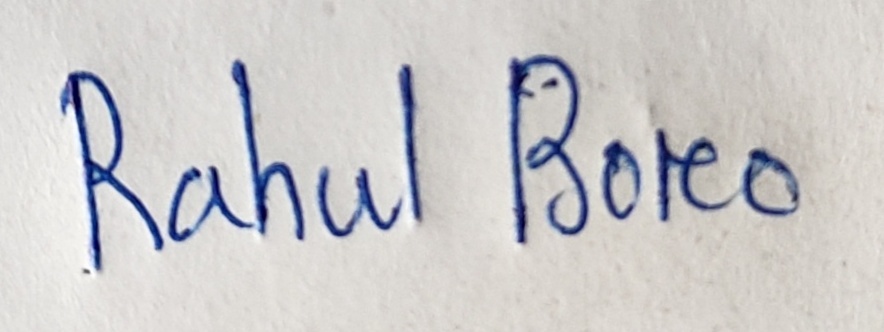 Rahul Boreo